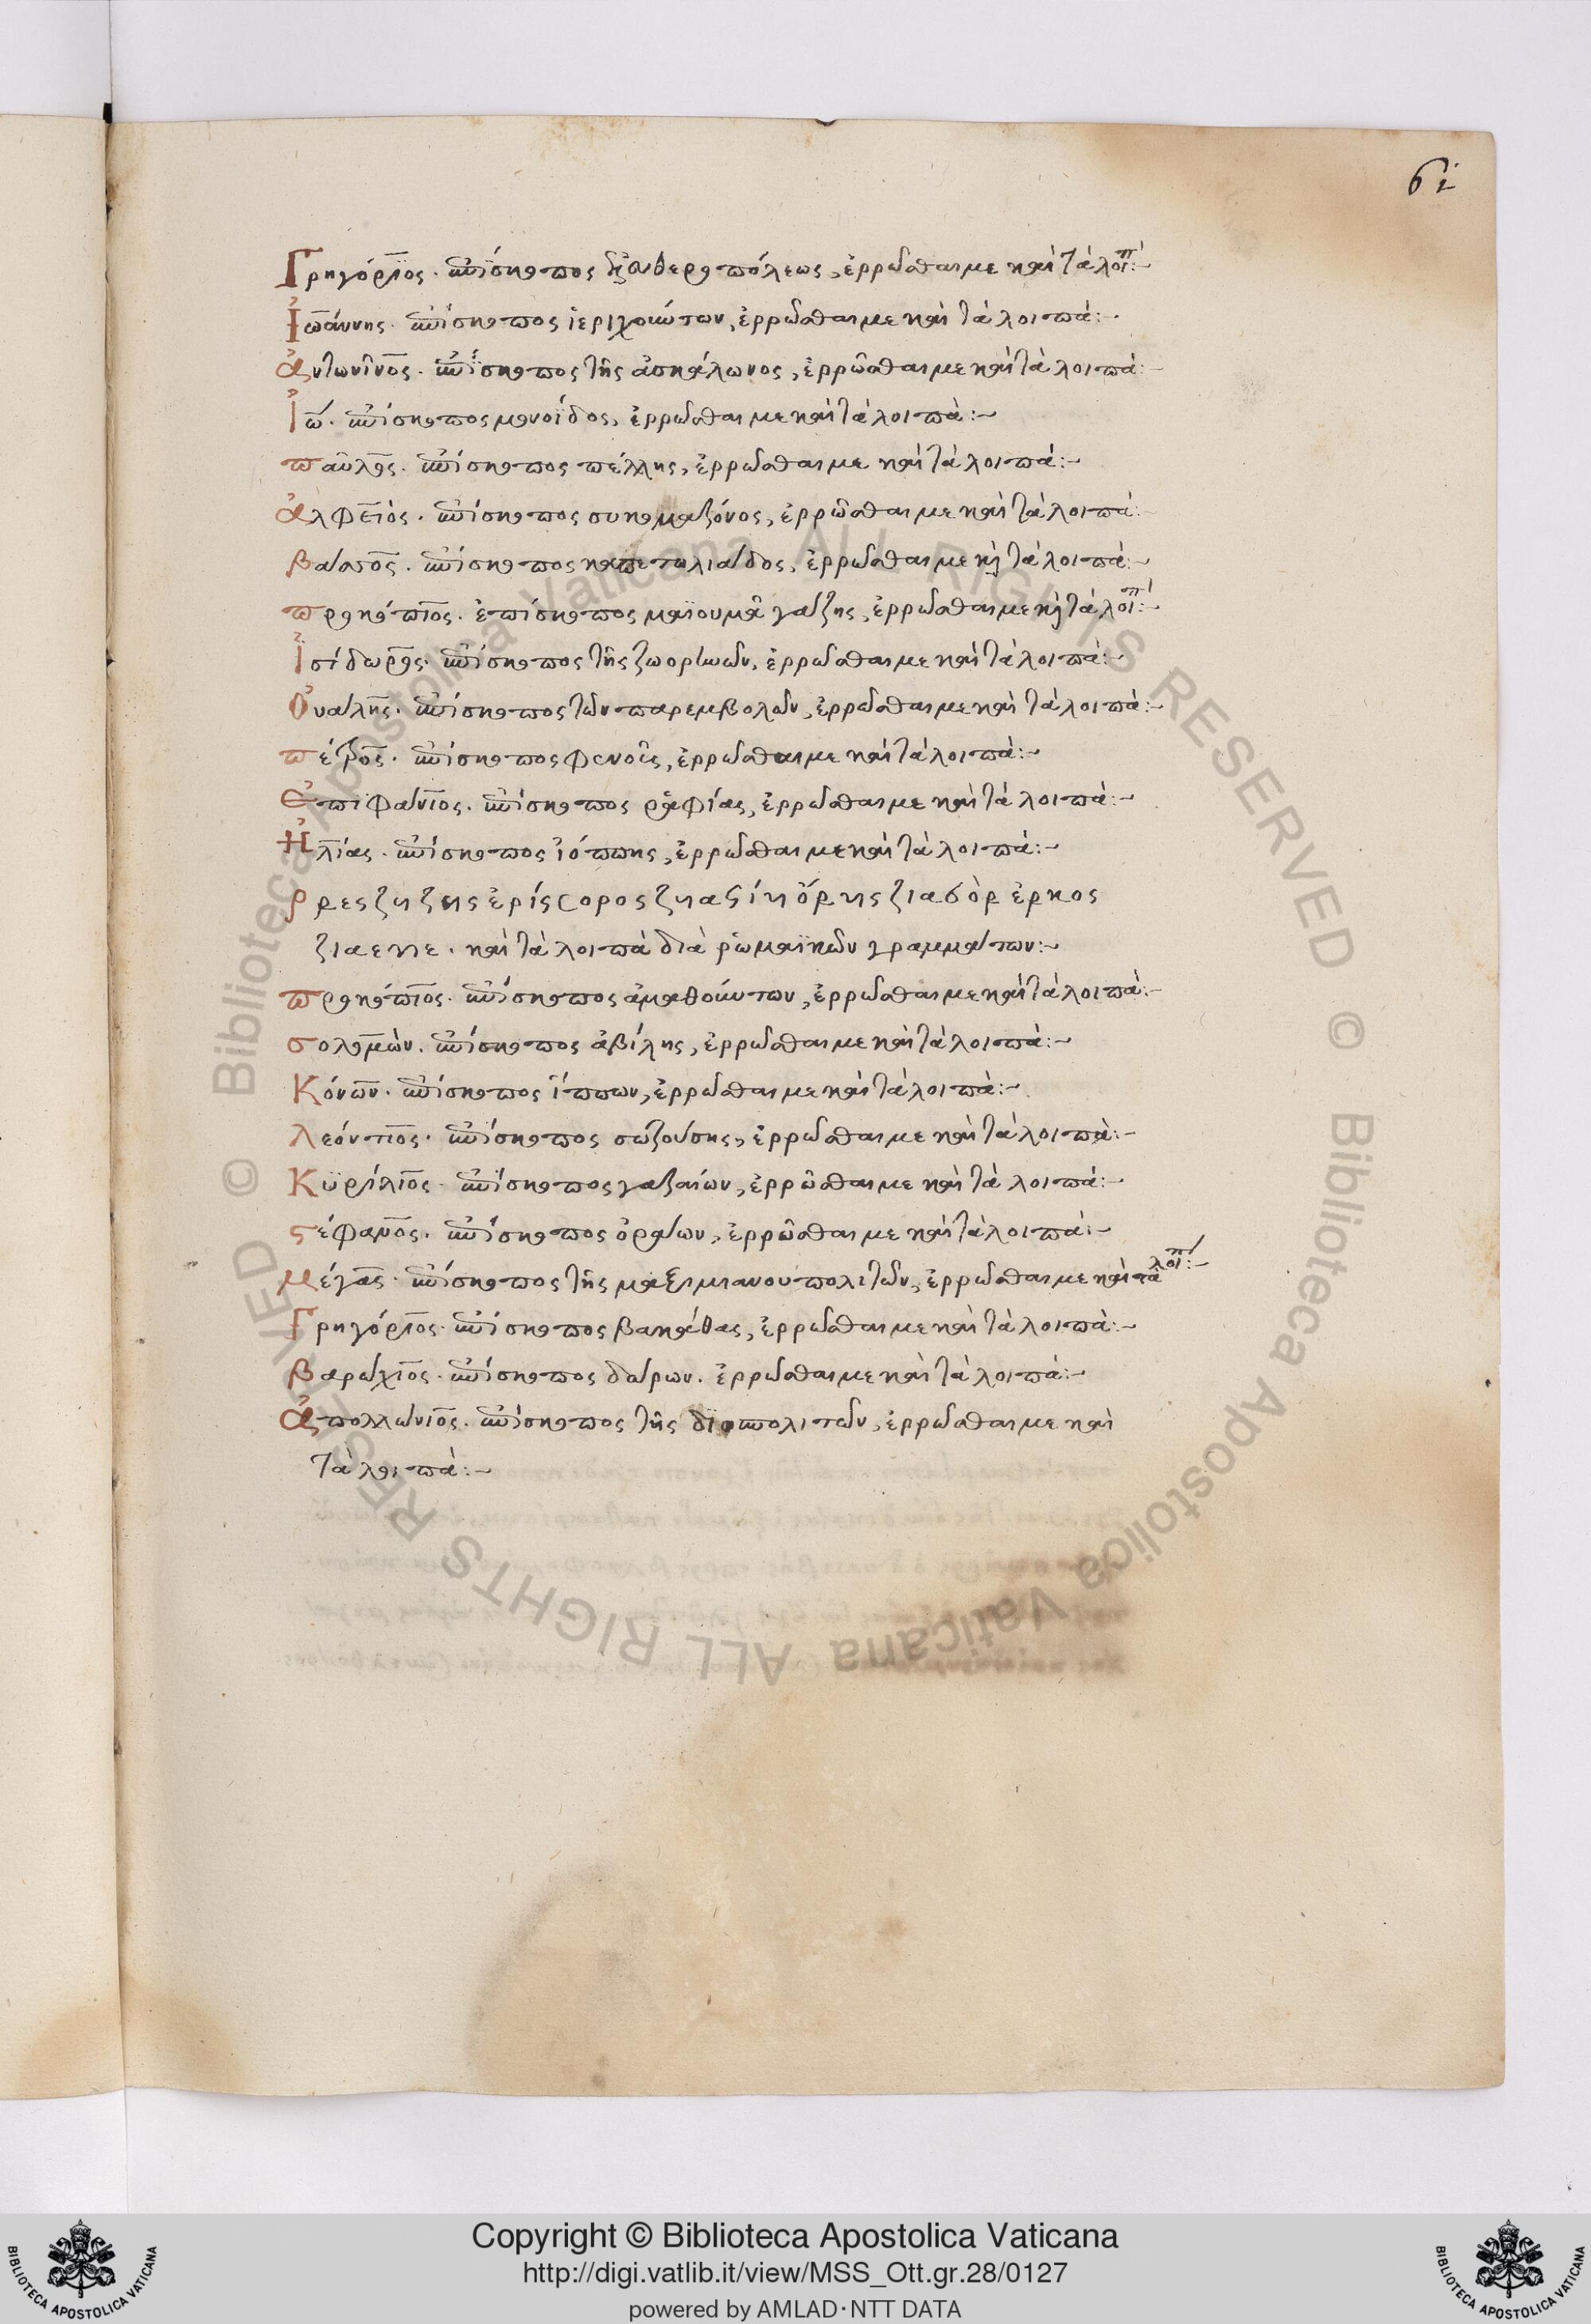 61
Γρηγόριος. ἐπίσκοπος ἐλευθεροπόλεως, ἐρρῶσθαι με καὶ τὰ λοιπ:~
Ἰωάννης. ἐπίσκοπος ἱεριχούντων, ἐρρῶσθαι με καὶ τὰ λοιπά:~
ἀντωνῖνος. ἐπίσκοπος τῆς ἀσκάλωνος, ἐρρῶσθαι με καὶ τὰ λοιπά:~
Ἰω. ἐπίσκοπος μονοΐδος, ἐρρῶσθαι με καὶ τὰ λοιπὰ:~
παῦλος. ἐπίσκοπος πέλλης, ἐρρῶσθαι με καὶ τὰ λοιπά:~
ἀλφειὸς. ἐπίσκοπος συκομαζόνος, ἐρρῶσθαι με καὶ τὰ λοιπὰ:~
βάασος. ἐπίσκοπος καπετωλιάδος, ἐρρῶσθαι με κὶ τὰ λοιπὰ:~
προκόπιος. ἐπίσκοπος μαϊουμᾶ γάζης, ἐρρῶσθαι με κὶ τὰ λοιπ:~
Ἰσίδωρος. ἐπίσκοπος τῆς ζωορίωων, ἐρρῶσθαι με καὶ τὰ λοιπὰ:~
Ὀυάλης. ἐπίσκοπος τῶν παρεμβολῶν, ἐρρῶσθαι με καὶ τὰ λοιπὰ:~
πέτρος. ἐπίσκοπος φενοῖς, ἐρρῶσθαι με καὶ τὰ λοιπὰ:~
Ἐπιφάνιος. ἐπίσκοπος ῥαφίας, ἐρρῶσθαι με καὶ τὰ λοιπὰ:~
Ἠλίας. ἐπίσκοπος ἰόππης, ἐρρῶσθαι με καὶ τὰ λοιπά:~
ζιαενε. καὶ τὰ λοιπὰ διὰ ῥωμαϊκῶν γραμμάτων:~
προκόπιος. ἐπίσκοπος ἀμαθούντων, ἐρρῶσθαι με καὶ τὰ λοιπὰ:~
σολομὼν. ἐπίσκοπος ἀβίλης, ἐρρῶσθαι με καὶ τὰ λοιπὰ:~
Κόνων. ἐπίσκοπος ἵππων, ἐρρῶσθαι με καὶ τὰ λοιπὰ:~
λεόντιος. ἐπίσκοπος σωζούσης, ἐρρῶσθαι με καὶ τὰ λοιπὰ:~
Κϋρίλιος. ἐπίσκοπος γαζαίων, ἐρρῶσθαι με καὶ τὰ λοιπά:~
στέφανος. ἐπίσκοπος ὀράων, ἐρρῶσθαι με καὶ τὰ λοιπὰ:~
μέγας. ἐπίσκοπος τῆς μαξιμιανουπολιτῶν, ἐρρῶσθαι με καὶ τὰ λοιπ:~
Γρηγόριος. ἐπίσκοπος βακάθας, ἐρρῶσθαι με καὶ τὰ λοιπὰ:~
βαρώχιος. ἐπίσκοπος δώρων. ἐρρῶσθαι με καὶ τὰ λοιπὰ:~
ἀπολλώνιος. ἐπίσκοπος τῆς διοπολιτῶν, ἐρρῶσθαι με καὶ
τὰ λοιπὰ:~
© Biblioteca Apostolica Vaticana ALL RIGHTS RESERVED © Biblioteca Apostolica Vaticana ALL RIGHTS RESERVED
Copyright © Biblioteca Apostolica Vaticana
http://digi.vatlib.it/view/MSS_Ott.gr.28/0127
powered by AMLAD·NTT DATA
BIBLIOTECA APOSTOLICA VATICANA
BIBLIOTECA APOSTOLICA VATICANA